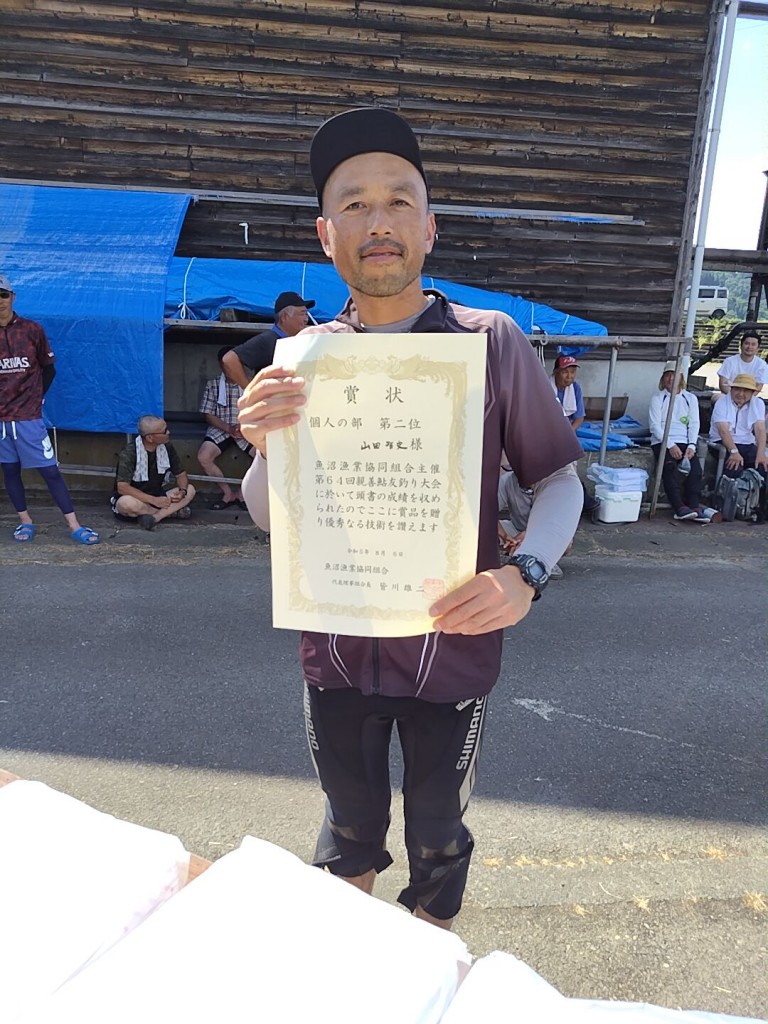 賞 状
個人の部 第二位
山田 史 様
魚沼漁業協同組合主催
第64回親善鮎友釣り大会
に於いて頭書の成績を収め
られたのでここに賞品を贈
り優秀なる技術を讃えます
令和5年 8月 6日
魚沼漁業協同組合
代表理事組合長 皆川雄二
SHIMANO
SHIMANO